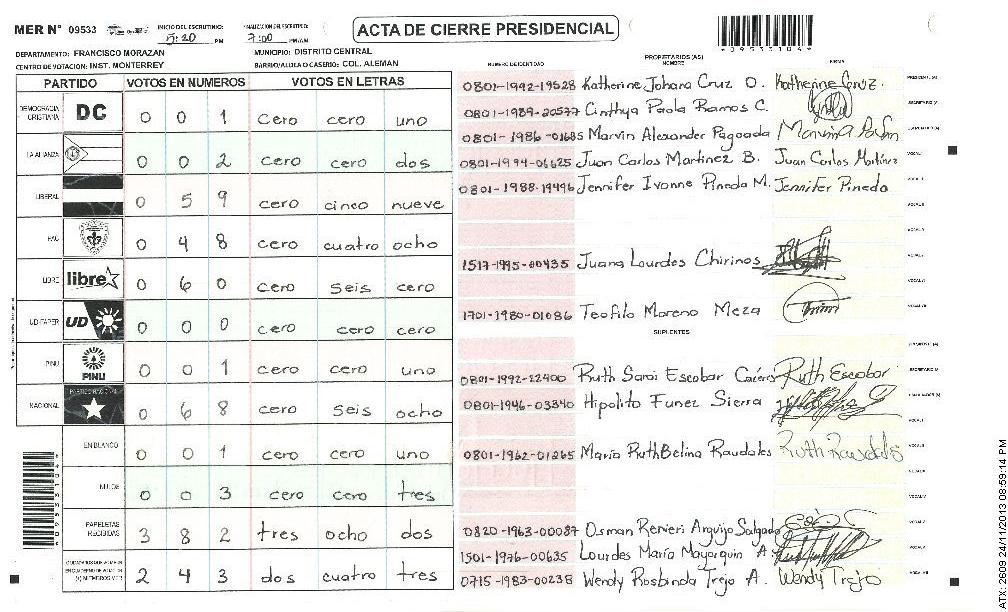 MER N° 09533 INICIO DEL ESCRUTINIO: 5:20 PM 7:00 PM/AM ACTA DE CIERRE PRESIDENCIAL
DEPARTAMENTO: FRANCISCO MORAZAN MUNICIPIO: DISTRITO CENTRAL
CENTRO DE VOTACION: INST. MONTERREY BARRIO/ALDEA O CASERIO: COL. ALEMAN
PARTIDO VOTOS EN NUMEROS VOTOS EN LETRAS
DEMOCRACIA CRISTIANA DC 0 0 1 cero cero uno
LA ALIANZA 0 0 2 cero cero dos
LIBERAL 0 5 9 cero cinco nueve
PAC 0 4 8 cero cuatro ocho
LIBRE libre 0 6 0 cero seis cero
UD-FAPER UD 0 0 0 cero cero cero
PINU PINU 0 0 1 cero cero uno
NACIONAL PARTIDO NACIONAL 0 6 8 cero seis ocho
EN BLANCO 0 0 1 cero cero uno
NULOS 0 0 3 cero cero tres
PAPELETAS RECIBIDAS 3 8 2 tres ocho dos
2 4 3 dos cuatro tres
NUMERO DE IDENTIDAD PROPIETARIOS (AS) NOMBRE FIRMA
0801-1992-19528 Katherine Johana Cruz O. Katherine Cruz.
0801-1989-20577 Cinthya Paola Ramos C.
0801-1986-01685 Marvin Alexander Pagoada
0801-1994-06625 Juan Carlos Martinez B. Juan Carlos Martinez
0801-1988-19496 Jennifer Ivonne Pineda M. Jennifer Pineda
1517-1995-00435 Juana Lourdes Chirinos
1701-1980-01086 Teofilo Moreno Meza
SUPLENTES
0801-1992-22400 Ruth Sarai Escobar Cáceres Ruth Escobar
0801-1946-03340 Hipolito Funez Sierra
0801-1962-01265 Maria Ruth Belina Raudales Ruth Raudales
0820-1963-00087 Osman Renieri Arguijo Salgado
1501-1976-00635 Lourdes Maria Mayorquin A
0715-1983-00238 Wendy Rosbinda Trejo A. Wendy Trejo
ATX: 2609 24/11/2013 08:59:14 PM